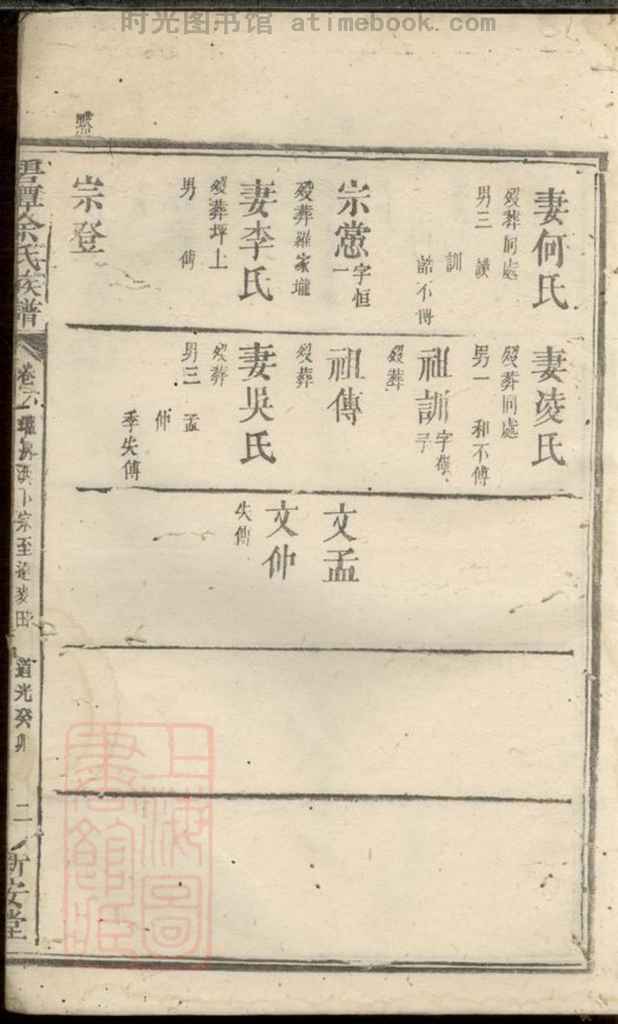 时光图书馆 atimebook.com
妻何氏
歿葬同處
男三 謨
訓
誥不傳
宗憲 字恒一
歿葬羅家壠
妻李氏
歿葬坪上
男 傳
宗登
妻凌氏
歿葬同處
男一 和不傳
祖訓 字
歿葬
祖傳
歿葬
妻吳氏
歿葬
男三 孟
仲
季失傳
文孟
文仲
失傳
余氏族譜
卷
道光癸卯
二
新安堂
上海圖書館藏